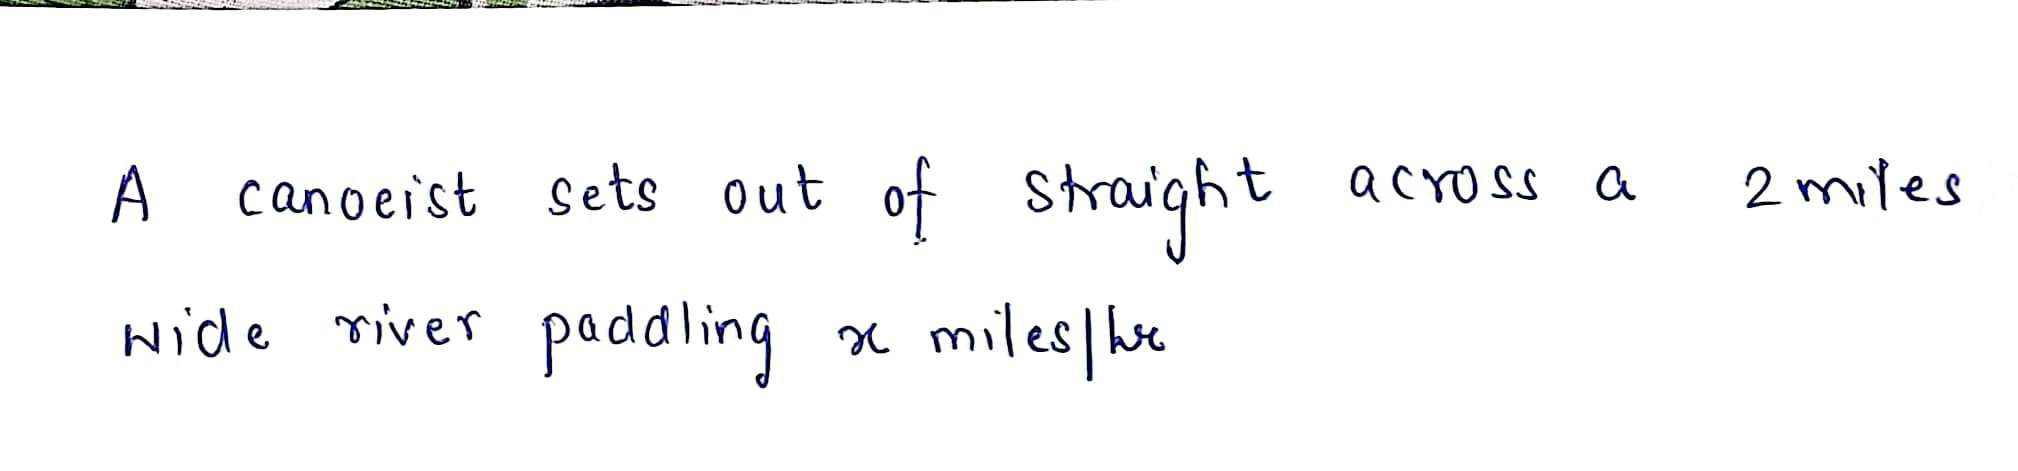 A canoeist sets out of straight across a 2 miles
wide river paddling x miles/hr